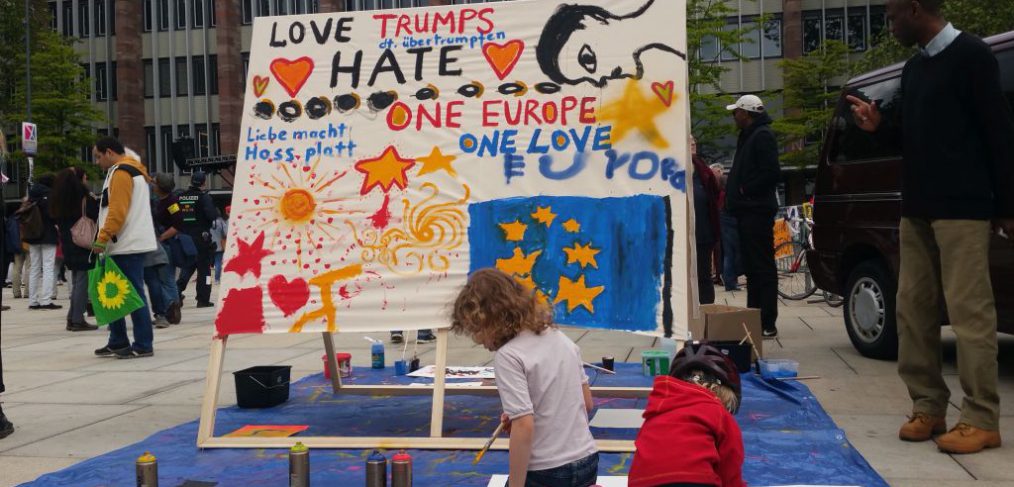 LOVE TRUMPS
dt. übertrumpfen
HATE
ONE EUROPE
Liebe macht
Hass platt
ONE LOVE
EUROPA
POLIZEI